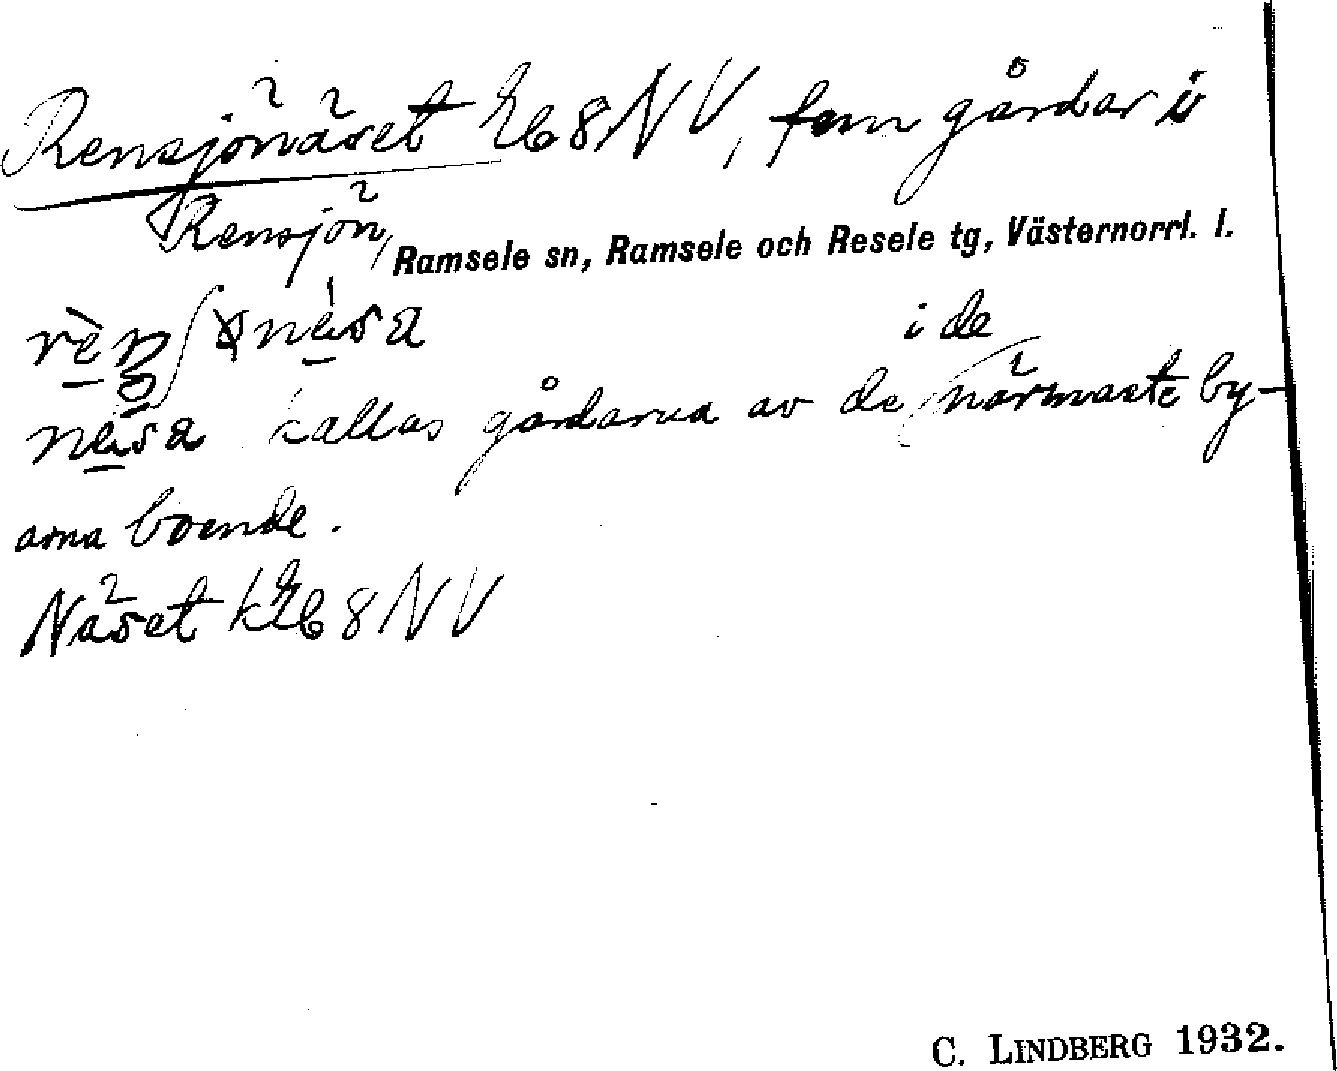 Rensjönäset Eb 8 NV, fem gårdar i
Rensjön, Ramsele sn, Ramsele och Resele tg, Västernorrl. l.
i de
kallas gårdarna av de närmaste by-
arna boende.
Näset Eb 8 NV
C. LINDBERG 1932.